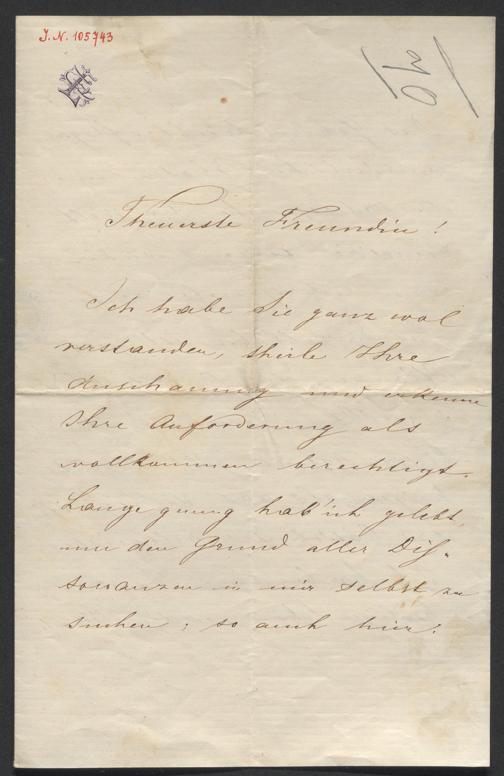 J. N. 105743
Theuerste Freundin!
Ich habe Sie ganz wol
verstanden, theile Ihre
Anschauung und erkenne
Ihre Anforderung als
vollkommen berechtigt.
Lange genug hab' ich gelebt,
um den Grund aller Diß-
sonanzen in mir selbst zu
suchen; so auch hier.